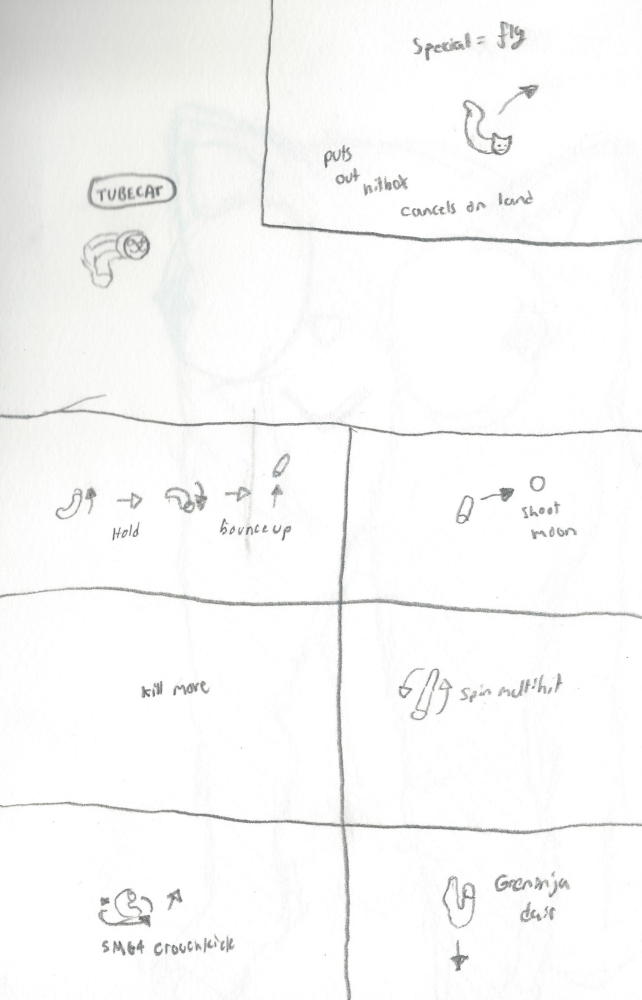 Special = fly
puts
out hitbox
cancels on land
TUBECAT
Hold
bounce up
shoot
moon
kill more
Spin multihit
SM64 crouch kick
Greninja
dair